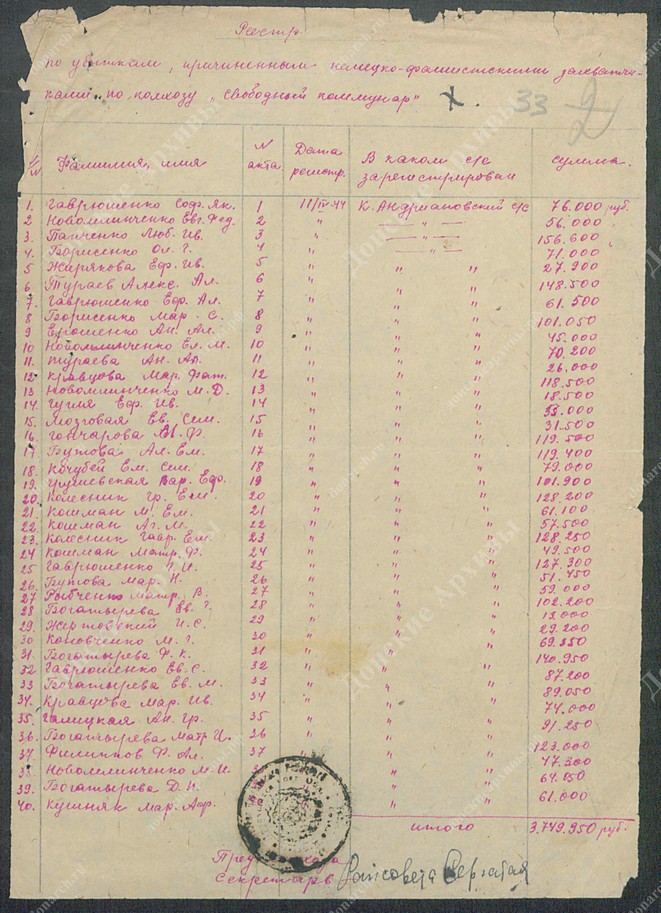 Реестр
по убыткам, причиненным немецко-фашистскими захватчи-
ками по колхозу "Свободный коммунар" х. 33
Фамилия, имя N акта Дата регистр. В каком с/с зарегистрирован сумма.
1. Гаврюшенко Соф. Як. 1 11/IV-44 К. Андриановский с/с 76.000 руб.
2 Новомлинченко Евг. Фед. 2 " — " — 56.000
3. Панченко Люб. Ив. 3 " — " — 156.600
4. Борисенко Ол. Г. 4 " — " — 71.000
5 Жирякова Еф. Ив. 5 " " " 27.900
6 Тураев Алекс. Ал. 6 " " " 148.500
7. Гаврюшенко Еф. Ал. 7 " " " 61.500
8 Борисенко Мар. С. 8 " " " 101.050
9 Ерошенко Ан. Ал. 9 " " " 45.000
10 Новомлинченко Ел. М. 10 " " " 70.200
11. Тураева Ан. Ап. 11 " " " 26.000
12 Кравцова Мар. 12 " " " 118.500
13 Новомлинченко М. Д. 13 " " " 18.500
14. Гугля Еф. Ив. 14 " " "
15. Мозговая Ев. Сем. 15 " " " 31.500
16. Гончарова Ф. 16 " " " 119.500
17 Бутова Ал. Ем. 17 " " " 119.400
18. Кочубей Ем. Сем. 18 " " " 79.000
19. Вар. Еф. 19 " " " 101.900
20. Колесник Гр. 20 " " " 128.200
21. Кошман М. Ем. 21 " " " 61.100
22. Кошман Аг. М. 22 " " " 57.500
23. Колесник Гавр. Ем. 23 " " " 128.250
24 Кошман Матр. Ф. 24 " " " 49.500
25 Гаврюшенко И. 25 " " " 127.300
26. Бутова Мар. Н. 26 " " " 51.450
27 Рыбченко Матр. В. 27 " " " 59.000
28 Богатырева Ев. Г. 28 " " " 102.200
29. Жертовский И. С. 29 " " "
30 Коновченко М. Г. 30 " " " 29.200
31. Богатырева Ф. К. 31 " " " 69.350
32 Гаврюшенко Ев. С. 32 " " " 140.950
33 Богатырева Ев. М. 33 " " " 87.200
34. Кравцова Мар. Ив. 34 " " " 89.050
35. Галицкая Ан. Гр. 35 " " " 74.000
36. Богатырева Матр. И. 36 " " " 91.250
37. Филиппов Ф. Ал. 37 " " " 123.000
38. Новомлинченко М. И. " " " 47.300
39. Богатырева Д. Н. " " " 64.850
40. Кушняк Мар. Аф. " " " 61.000
итого 3.749.950 руб.
Пред. колхоза
Секретарь